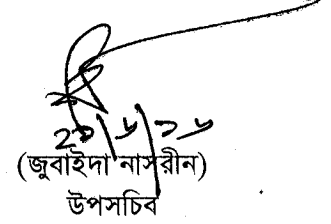 (জুবাইদা নাসরীন)
উপসচিব